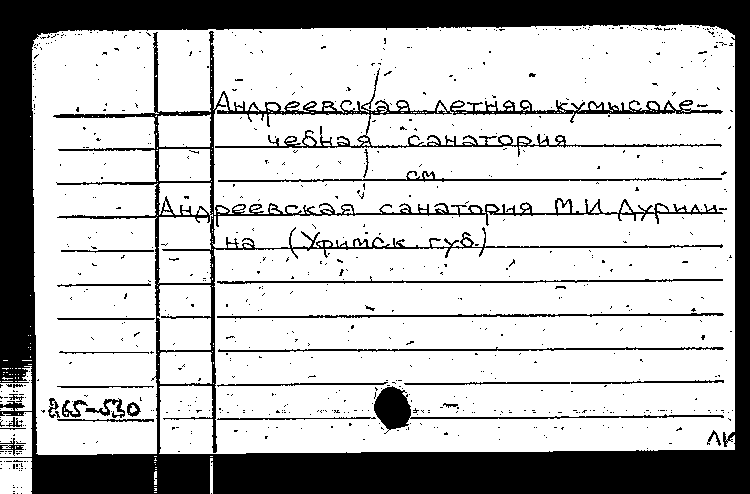 Андреевская летняя кумысоле-
чебная санатория
см.
Андреевская санатория М.И. Дурили-
на (Уфимск. губ.)
865-530
ЛК